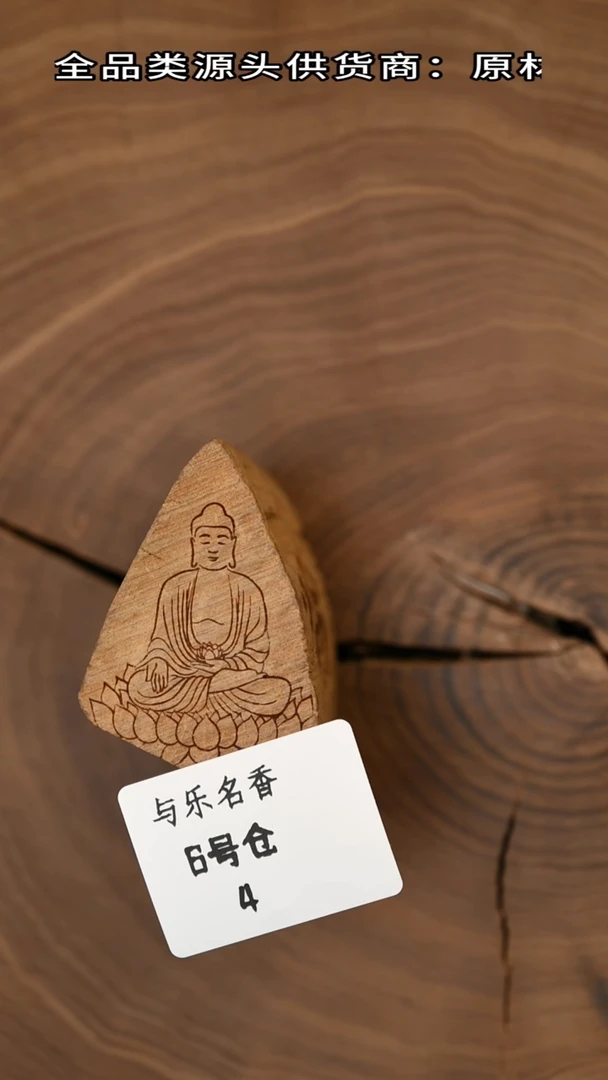 全品类源头供货商：原材
与乐名香
6号仓
4